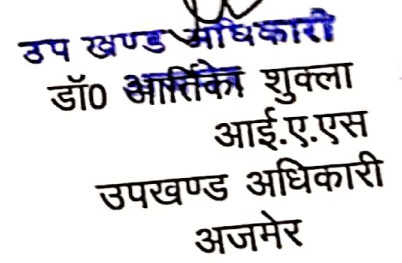 उप खण्ड अधिकारी
डॉ0 आर्तिका शुक्ला
आई.ए.एस
उपखण्ड अधिकारी
अजमेर